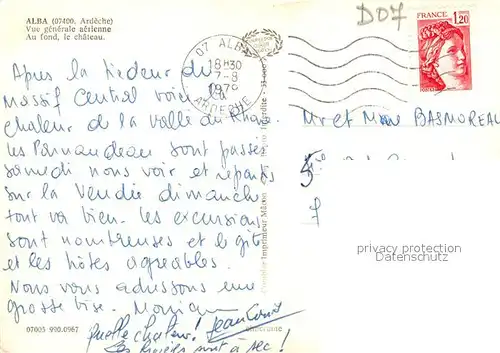 ALBA (07400, Ardèche)
Vue générale aérienne
Au fond, le château.
D07
07 ALBA
18H30
7-8
1979
ARDECHE
FRANCE
1,20
Après la tiédeur du
Massif Central voici la
chaleur de la vallée du Rhône
les Bonnaudeau sont passés
samedi nous voir et repartis
sur la Vendée dimanche
tout va bien. les excursions
sont nombreuses et le gîte
et les hôtes agréables.
Nous vous adressons une
grosse bise. Monique
quelle chaleur!
les rivières sont à sec!
Mr et Mme BASMOREAU
5
7
privacy protection
Datenschutz
07005 990.0967